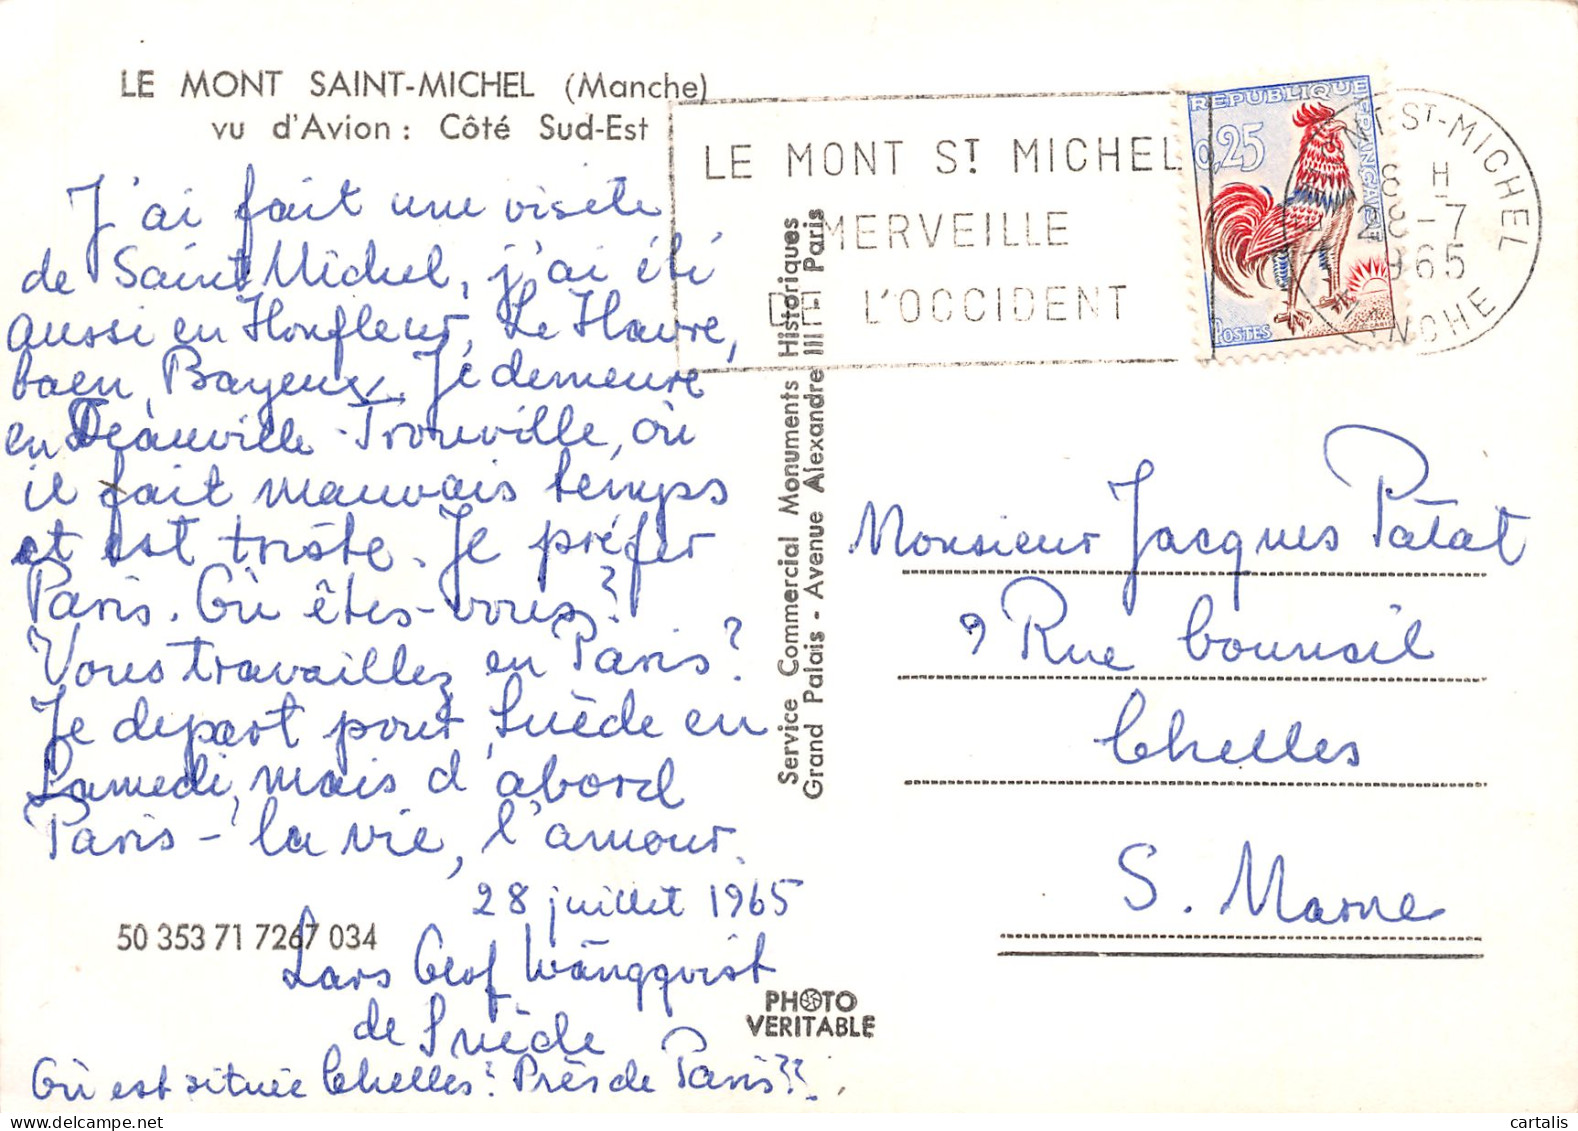 LE MONT SAINT-MICHEL (Manche)
vu d'Avion : Côté Sud-Est
J'ai fait une visite
de Saint Michel, j'ai été
aussi en Honfleur, Le Havre,
Caen, Bayeux. Je demeure
en Deauville-Trouville, où
il fait mauvais temps
et est triste. Je préfer
Paris. Où êtes-vous?
Vous travaillez en Paris?
Je depart pour Suède en
Samedi, mais d'abord
Paris - la vie, l'amour.
28 juillet 1965
Lars Olof Wängqvist
de Suède
Où est située Chelles? Près de Paris??
50 353 71 7267 034
PHOTO
VERITABLE
Service Commercial Monuments Historiques
Grand Palais - Avenue Alexandre III - Paris
LE MONT ST MICHEL
MERVEILLE
DE L'OCCIDENT
REPUBLIQUE FRANÇAISE
0,25
POSTES
NT-ST-MICHEL
8 H
28-7
1965
MANCHE
Monsieur Jacques Patat
9 Rue Counsil
Chelles
S. Marne
cartalis